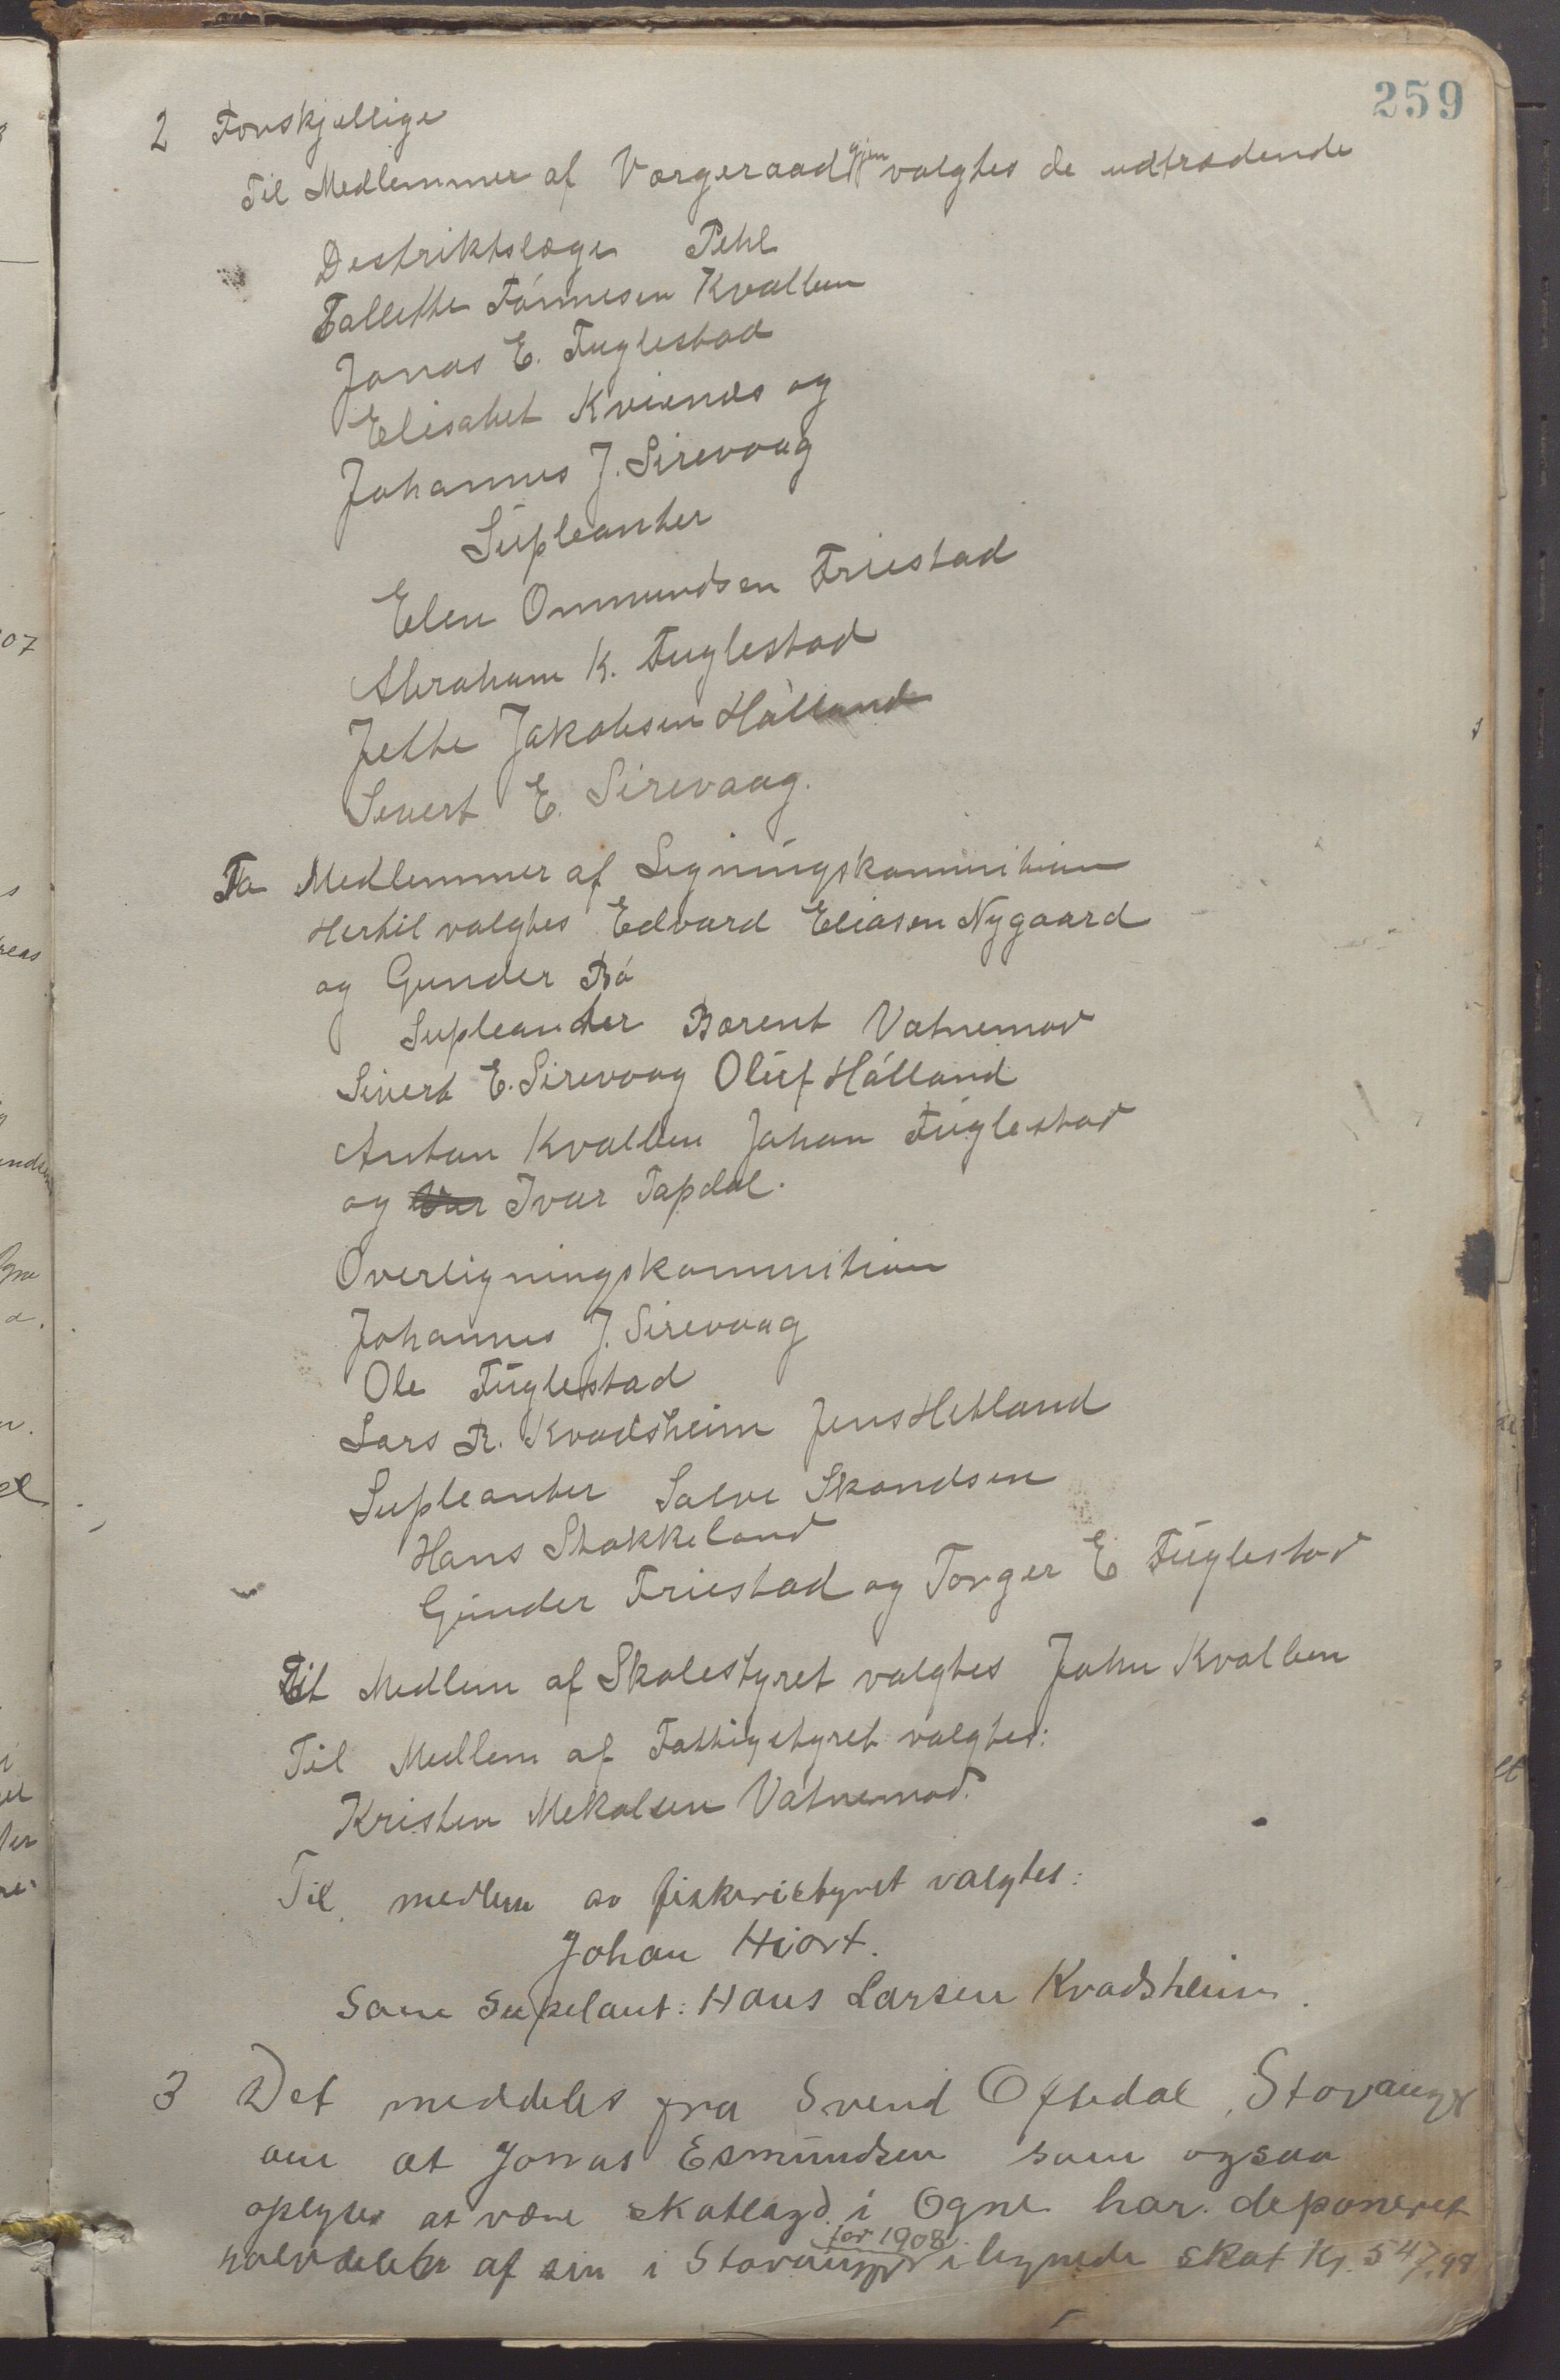 259
2 Forskjellige
Til Medlemmer af Værgeraad gjen valgtes de udtrædende
Destriktslæge Pihl
Tallette Tónnesen Kvalben
Jonas E. Fuglestad
Elisabet Kvienes og
Johannes J. Sirevaag
Supleanter
Elen Ommundsen Friestad
Abraham K. Fuglestad
Jette Jakobsen Hálland
Sivert E. Sirevaag.
To Medlemmer af Ligningskommitien
Hertil valgtes Edvard Eliasen Nygaard
og Gunder Bó
Supleanter Bærent Vatnemod
Sivert E. Sirevaag Oluf Hálland
Anton Kvalben Johan Fuglestad
og Ivar Tapdal.
Overligningskommitien
Johannes J. Sirevaag
Ole Fuglestad
Lars R. Kvadsheim Jens Hetland
Supleanter Salve Skandsen
Hans Stokkeland
Gunder Friestad og Torger E Fuglestad
Til Medlem af Skolestyret valgtes John Kvalben
Til Medlem af Fattigstyret valgtes:
Kristen Mekalsen Vatnemod.
Til medlem av fiskeristyret valgtes:
Johan Hiort.
Som Supelant: Hans Larsen Kvadsheim.
3 Det meddeles fra Svend Oftedal, Stavanger
om at Jonas Esmundsen som ogsaa
oplyses at være skatlagd i Ogne har deponeret
halvdelen af sin i Stavanger for 1908 ilignede skat Kr. 547,98